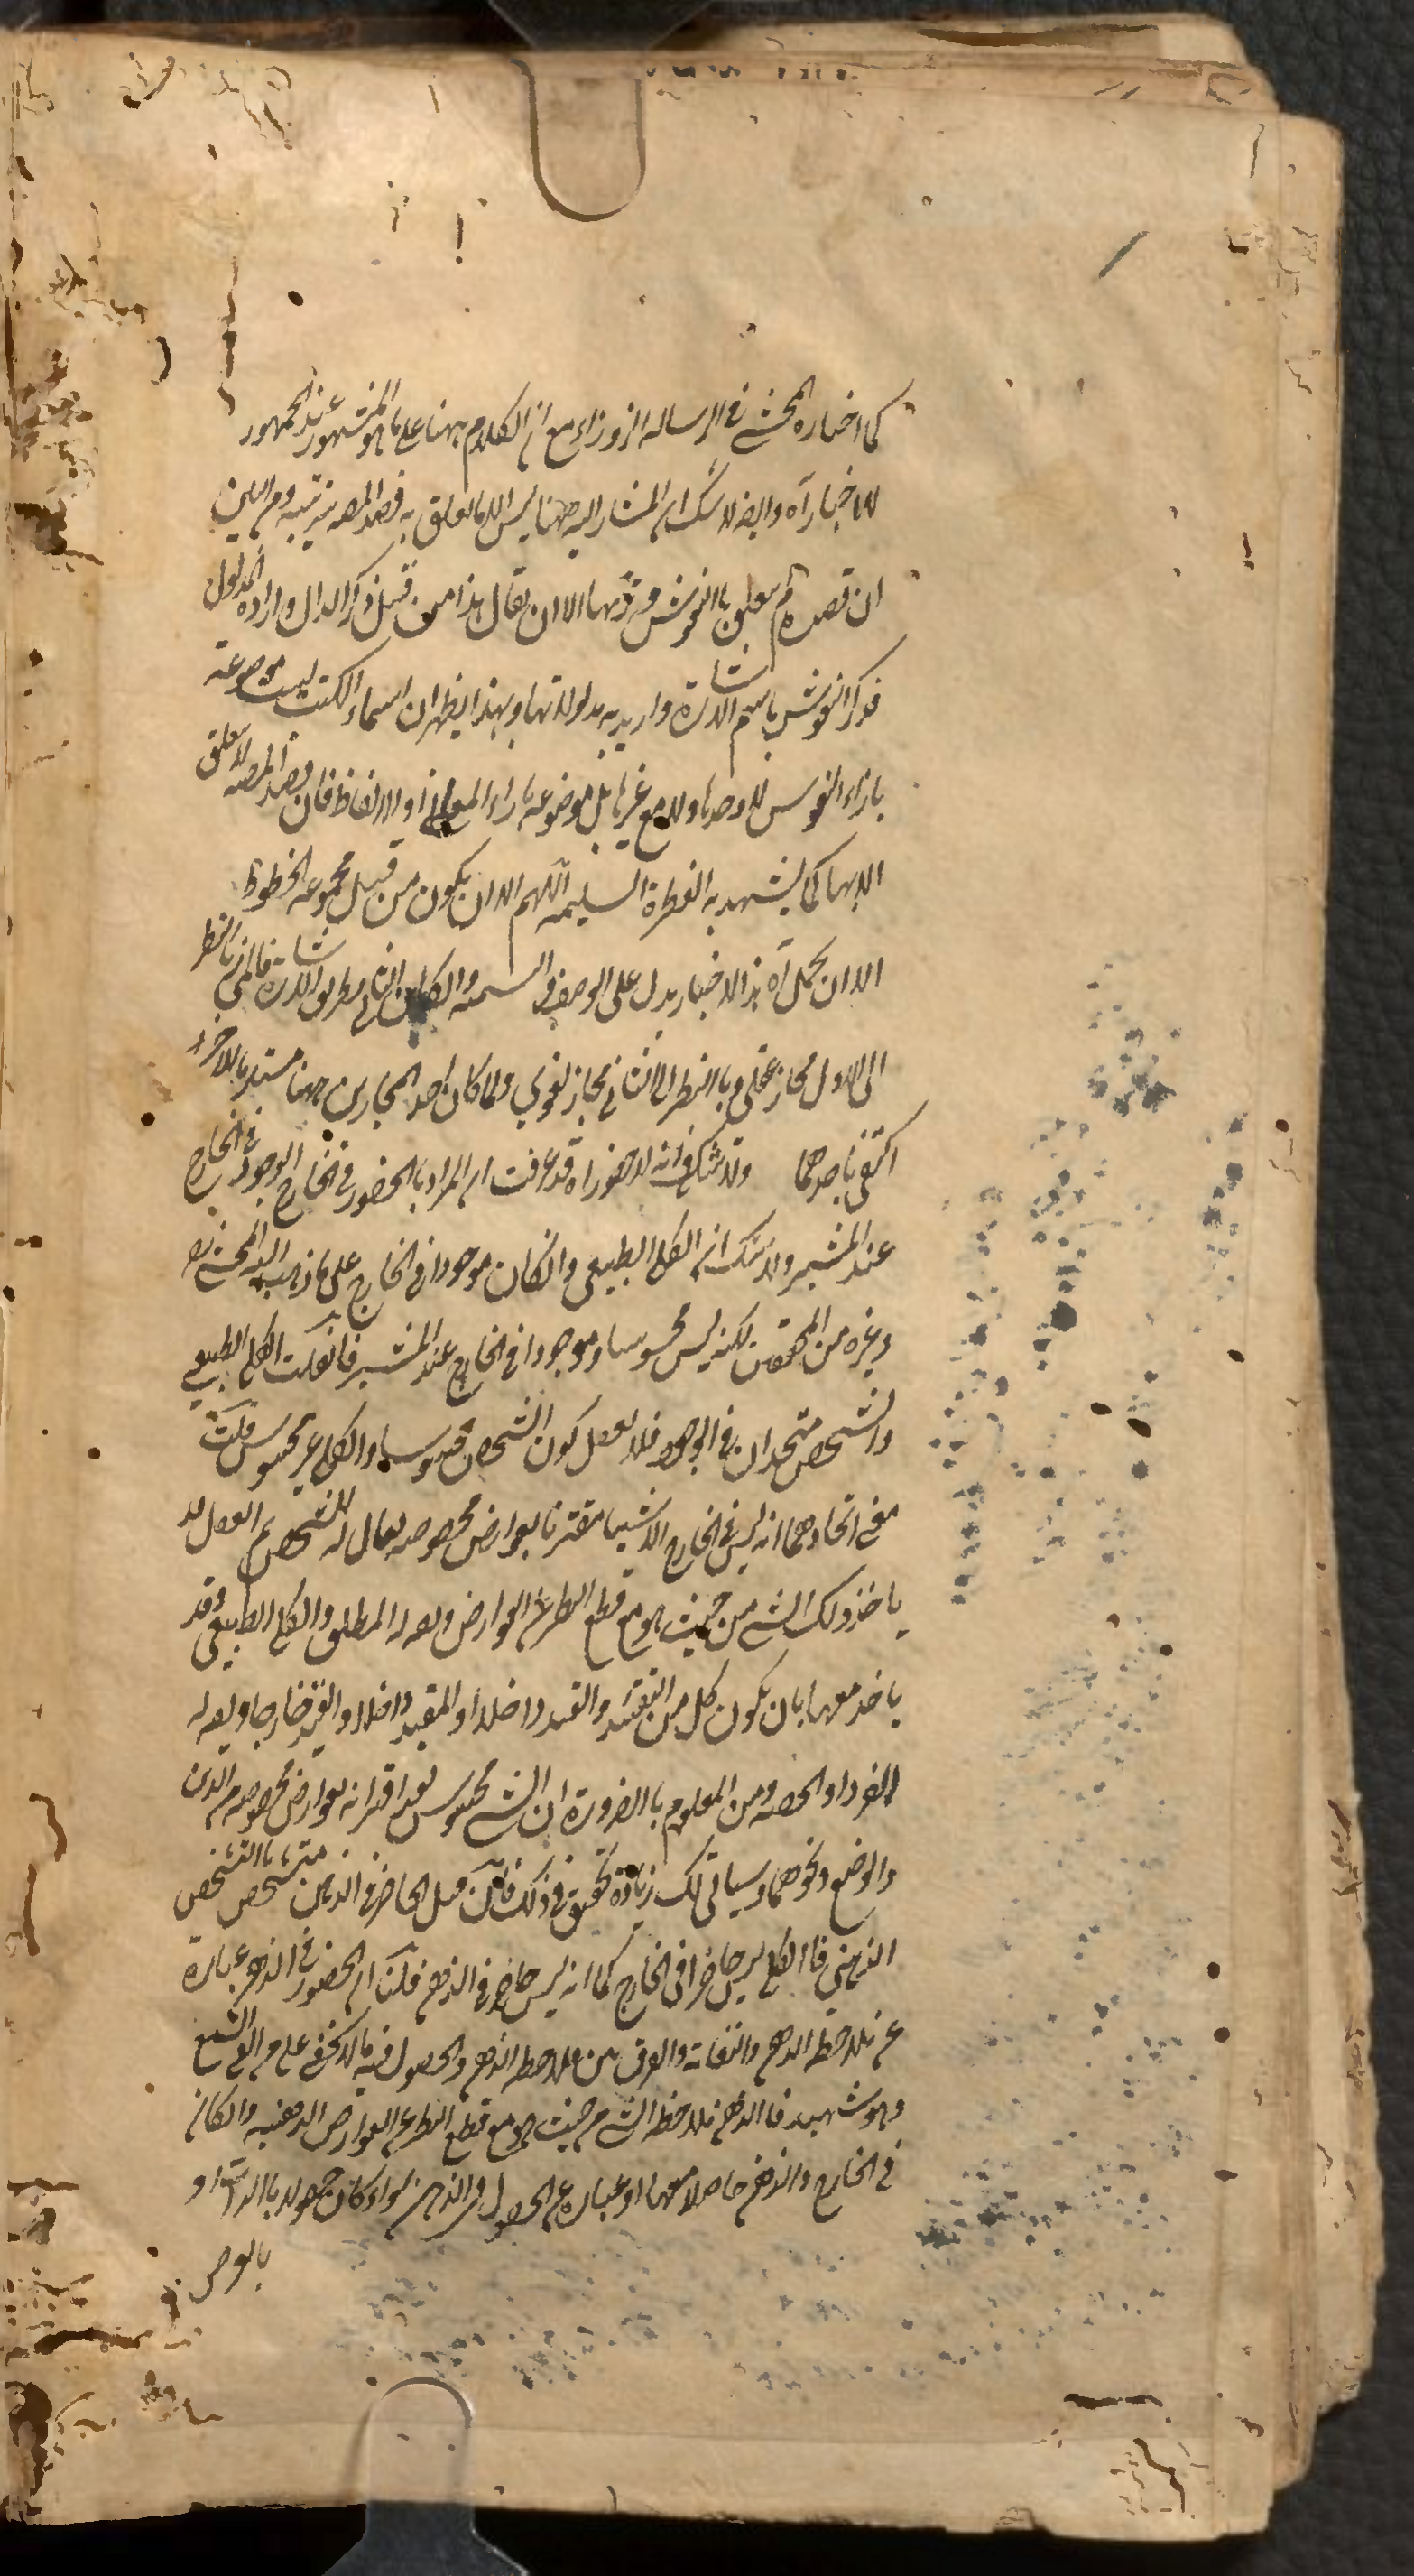 كما اختاره المحشي في الرسالة الزوراء مع ان الكلام ههنا على ما هو المشهور عند الجمهور
للاخبار آه وايضا لا شك ان المشار اليه ههنا ليس الا ما تعلق به قصد المصه بترتيبه ومن البين
ان قصده لم يتعلق بالنقوش وترتيبها الا ان يقال هذا من قبيل ذكر الدال وارادة المدلول
فذكر النقوش باسم الاشارة واريد به مدلولاتها وبهذا يظهر ان اسماء الكتب ليست موضوعة
بازاء النقوش لا وحدها ولا مع غيرها بل موضوعة بازاء المعاني او الالفاظ فان قصد المصه لا يتعلق
الا بها كما يشهد به الفطرة السليمة اللهم الا ان يكون من قبيل مجموعة الخطوط
الا ان يحمل آه هذا الاخبار يدل على الوصف والتسمية والكان الثاني بطريق الاشارة فالمجاز بالنظر
الى الاول مجاز عقلي وبالنظر الى الثاني مجاز لغوي ولما كان احد المجازين ههنا مستلزما للاخر
اكتفى باحدهما ولا شك في انه لا حضور آه قد عرفت ان المراد بالحضور في الخارج الوجود في الخارج
عند المشير ولا شك ان الكلي الطبيعي وانكان موجودا في الخارج على ما ذهب اليه المحشي ره
وغيره من المحققين لكنه ليس محسوسا وموجودا في الخارج عند المشير فان قلت الكلي الطبيعي
والشخص متحدان في الوجود فلا يعقل كون الشخص محسوسا والكلي غير محسوس قلت
معنى اتحادهما انه ليس في الخارج الا شيئا مقترنا بعوارض مخصوصة يقال له الشخص ثم العقل قد
ياخذ ذلك الشيء من حيث هو مع قطع النظر عن العوارض ويقال له المطلق والكلي الطبيعي وقد
ياخذ معها بان يكون كل من التقييد والقيد داخلا او التقييد داخلا والقيد خارجا ويقال له
الفرد او الحصة ومن المعلوم بالضرورة ان الشيء محسوس بعد اقترانه بعوارض مخصوصة من الاين
والوضع ونحوهما وسياتي لك زيادة تحقيق في ذلك فان قيل الحاضر في الذهن متشخص بالتشخص
الذهني فالكلي ليس حاضرا في الخارج كما انه ليس حاضرا في الذهن قلنا ان الحضور في الذهن عبارة
عن ملاحظة الذهن والتفاته والفرق بين ملاحظة الذهن والحصول فيه مما لا يخفى على من القى السمع
وهو شهيد فالذهن يلاحظ الشيء من حيث هو مع قطع النظر عن العوارض الذهنية وانكان
في الخارج والذهن حاصلا معها او عبارة عن الحصول في الذهن سواء كان حصوله بالذات او
بالعرض